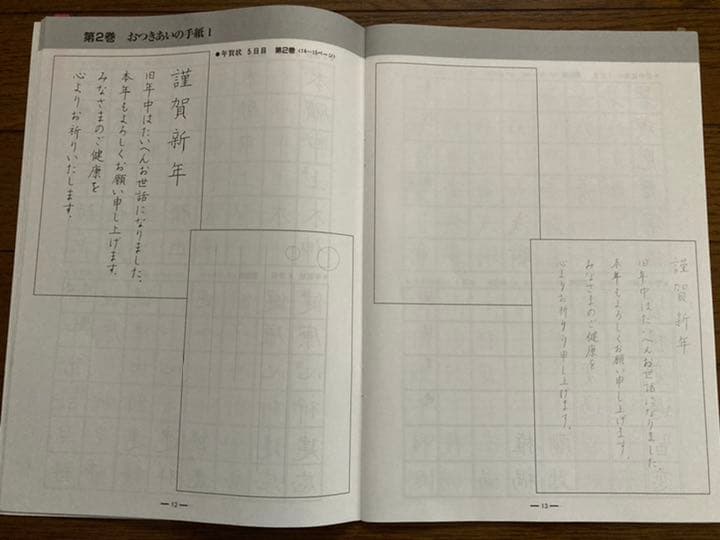 第2巻 おつきあいの手紙1
●年賀状 5日目 第2巻(14〜15ページ)
謹賀新年
旧年中はたいへんお世話になりました。
本年もよろしくお願い申し上げます。
みなさまのご健康を
心よりお祈りいたします。
— 12 —
謹賀新年
旧年中はたいへんお世話になりました。
本年もよろしくお願い申し上げます。
みなさまのご健康を
心よりお祈り申し上げます。
— 13 —